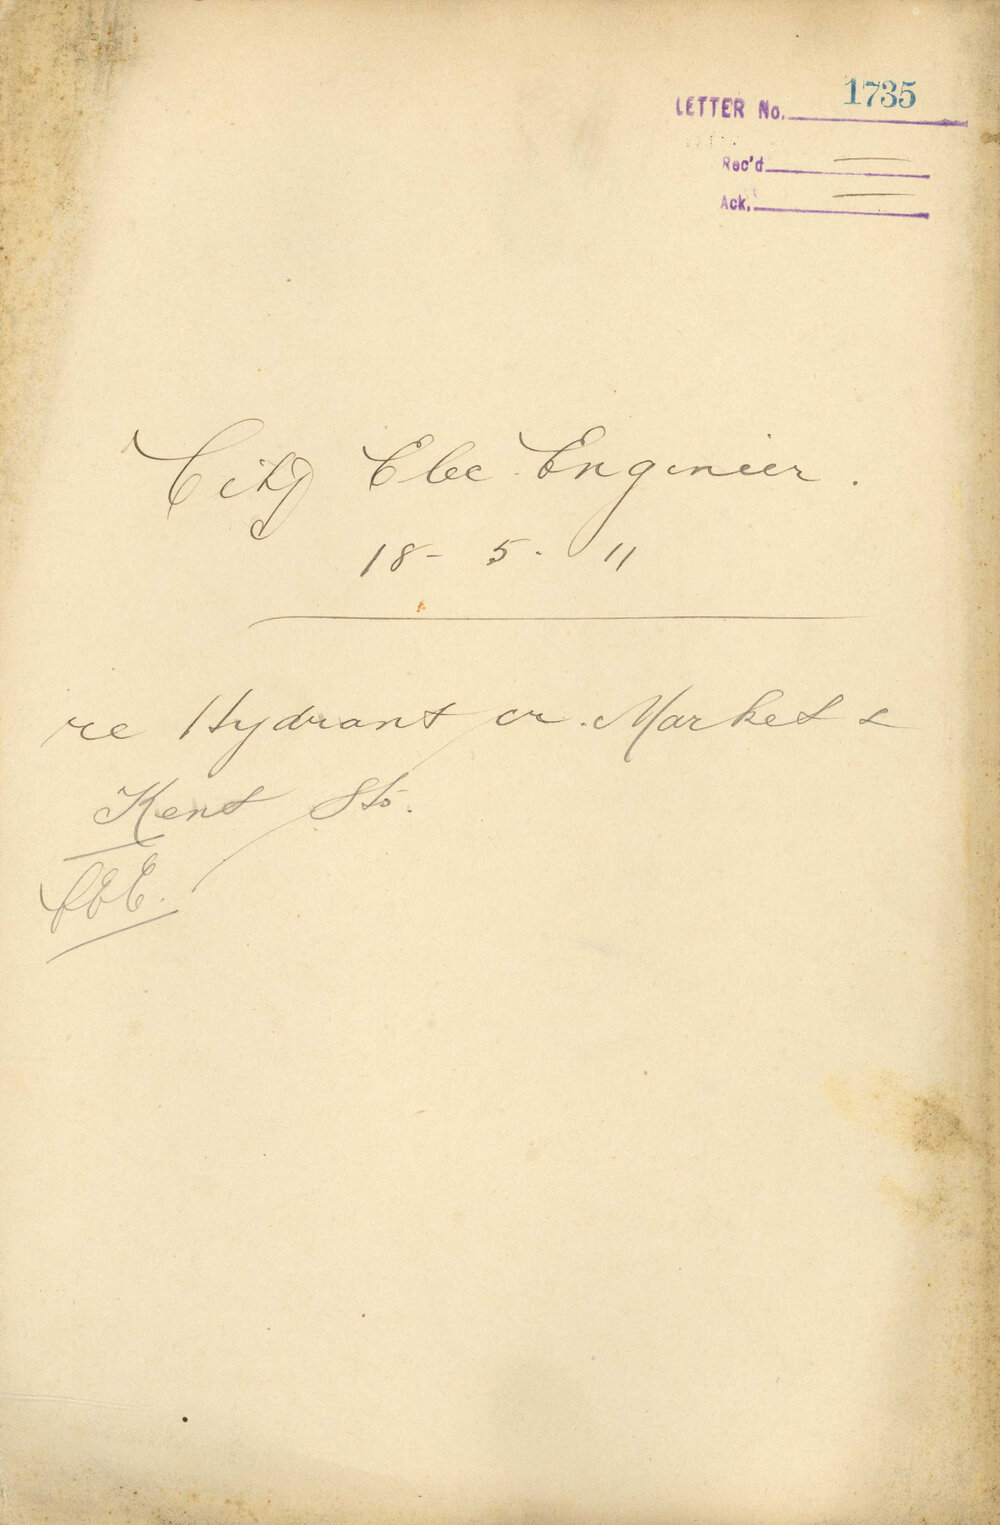 LETTER No. 1735
Rec'd
Ack.
City Elec Engineer.
18-5.11
re Hydrant cr. Market &
Kent Sts.